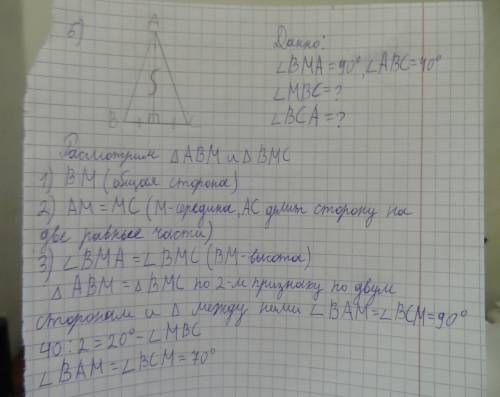 б)
A
5
B m
Данно:
∠BMA = 90°, ∠ABC = 40°
∠MBC = ?
∠BCA = ?
Расмотрим △ABM и △BMC
1) BM (общая сторона)
2) AM = MC (M-середина, AC делит сторону на
две равные части)
3) ∠BMA = ∠BMC (BM-высота)
△ABM = △BMC по 2-м признаку по двум
сторонам и △ между ними ∠BAM = ∠BCM = 90°
40 : 2 = 20° - ∠MBC
∠BAM = ∠BCM = 70°